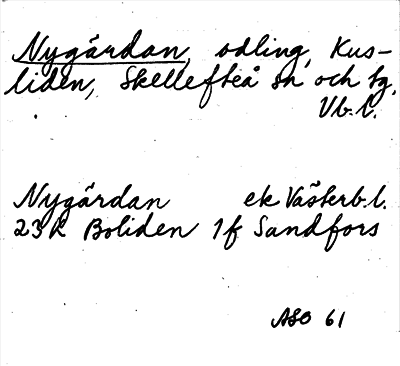 Nygärdan, odling, Kus-
liden, Skellefteå sn och tg,
Vb.l.
Nygärdan ek Västerb.l.
23K Boliden 1f Sandfors
ASO 61